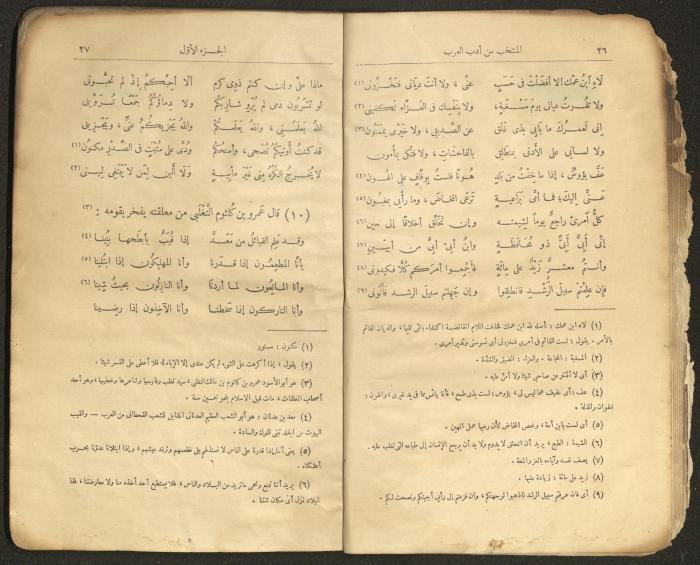 ٢٦ المنتخب من أدب العرب
لاهِ ابنُ عمك! لا أفضَلْتَ فى حَسَبٍ عنى، ولا أنتَ ديَّانى فتَخْزُونى (١)
ولا تَقُوتُ عيالى يومَ مَسْغَبَةٍ، ولا بنفسِك فى العَزَّاء تَكفينى (٢)
إنى لعمرُك ما بابى بذى غَلَقٍ عن الصديقِ، ولا خيرى بممنُونِ (٣)
ولا لسانى على الأدنى بمنطلقٍ بالفاحشاتِ، ولا فتكى بمأمون
عَفٌّ يؤوسٌ، إذا ما خفتُ من بلدٍ هُونًا فلستُ بوقَّافٍ على الهُونِ (٤)
عنّى إليكَ! فما أُمّى براعيةٍ تَرعَى المخاضَ، وما رأيى بمغبونِ (٥)
كلُّ امرئٍ راجعٌ يوماً لِشيمتِهِ وإن تَخَلَّقَ أخلاقا إلى حينِ (٦)
إنّى أبىٌّ أبىٌّ ذو مُحافَظَةٍ وابنُ أبىٍّ أبىٍّ من أبيّينِ (٧)
وأنتمُ معشرٌ زَيْدٌ على مائةٍ فأجمِعوا أمرَكم كُلًّا فكيدونى (٨)
فإن علمتم سبيلَ الرُّشدِ فانطلقوا وإن جَهِلتم سبيلَ الرشدِ فأتونى (٩)
(١) لاه ابن عمك : أصله لله ابن عمك فحذفت اللام الخافضة اكتفاء بالتى تليها، والديان القائم
بالأمر. يقول : لست القائم فى أمرى فتخزونى أى تسوسنى وتدبر أمرى.
(٢) المسغبة : المجاعة. والعزاء : الضيق والشدّة.
(٣) أى لا أقتر عن صاحبى شيئا ولا أمنّ عليه.
(٤) عف : أى عفيف عما ليس لى، يؤوس : لست بذى طمع، فأنا يائس مما فى يد غيرى، والهون :
الهوان والذلة.
(٥) أى لست بابن أمة، وخص المخاض لأن رعيها عمل المهين.
(٦) الشيمة : الطبع، يريد أن التخلق لا يدوم ولا بد أن يرجع الإنسان إلى طباعه التى تغلب عليه.
(٧) يصف نفسه وآباءه بالعز والمنعة.
(٨) زيد على مائة : زيادة عليها.
(٩) أى فإن عرفتم سبيل الرشد فاذهبوا لوجهتكم، وإن فزعتم إلى رأيى أجبتكم ونصحت لكم.
الجزء الأوّل ٢٧
ماذا علىَّ وإن كنتم ذوى كرم ألّا أحبَّكمُ إذ لم تحبُّونى
لو تشربون دمى لم يُرْوَ شاربُكم ولا دماؤكمُ جمعًا تُروّينى
اللهُ يعلَمُنى، واللهُ يعلمُكم واللهُ يجزيكمُ عنّى، ويجزينى
قد كنتُ أوتيكمُ نُصْحى، وأمنحُكم وُدّى على مُثْبَتٍ فى الصدر مكنون (١)
لا يُخرجُ الكُرْهُ منّى غيرَ مأبيةٍ ولا ألينُ لمن لا يبتغى لِينى (٢)
(١٠) قال عمرو بن كلثوم التَّغْلَبى من معلقته يفخر بقومه : (٣)
وقد علم القبائلُ من مَعَدٍّ إذا قُبَبٌ بأبطحها بُنينا (٤)
بأنّا المطعمُون إذا قَدَرنا وأنا المهلِكون إذا ابتُلينا (٥)
وأنا المانعُون لما أردنا وأنا النازلُون بحيثُ شِينا (٦)
وأنا التاركون إذا سَخطنا وأنا الآخِذون إذا رضينا
(١) مكنون : مستور
(٢) يقول، إذا أكرهت على الشىء لم يكن عندى إلا الإباء له فلا أعطى على القسر شيئا.
(٣) هو أبو الأسود عمرو بن كلثوم بن مالك التغلبى، سيد تغلب وفارسها وشاعرها وخطيبها، وهو أحد
أصحاب المعلقات، مات قبل الاسلام بنحو خمسين سنة.
(٤) معد بن عدنان : هو أبو الشعب العظيم العدنانى المقابل للشعب القحطانى من العرب — والقبب
البيوت من الجلد تبنى للملوك والسادة.
(٥) يعنى أننا إذا قدرنا على الناس لا نستذلهم بل نطعمهم ونرفد عيشهم، وإذا ابتلانا عدوّنا بحرب
أهلكناه.
(٦) يريد أننا نمنع ونحمى ما نريد من البلاد والناس، فلا يستطيع أحد أخذه منا ولا معارضتنا، فلنا
البلاد ننزل أى مكان شئنا.